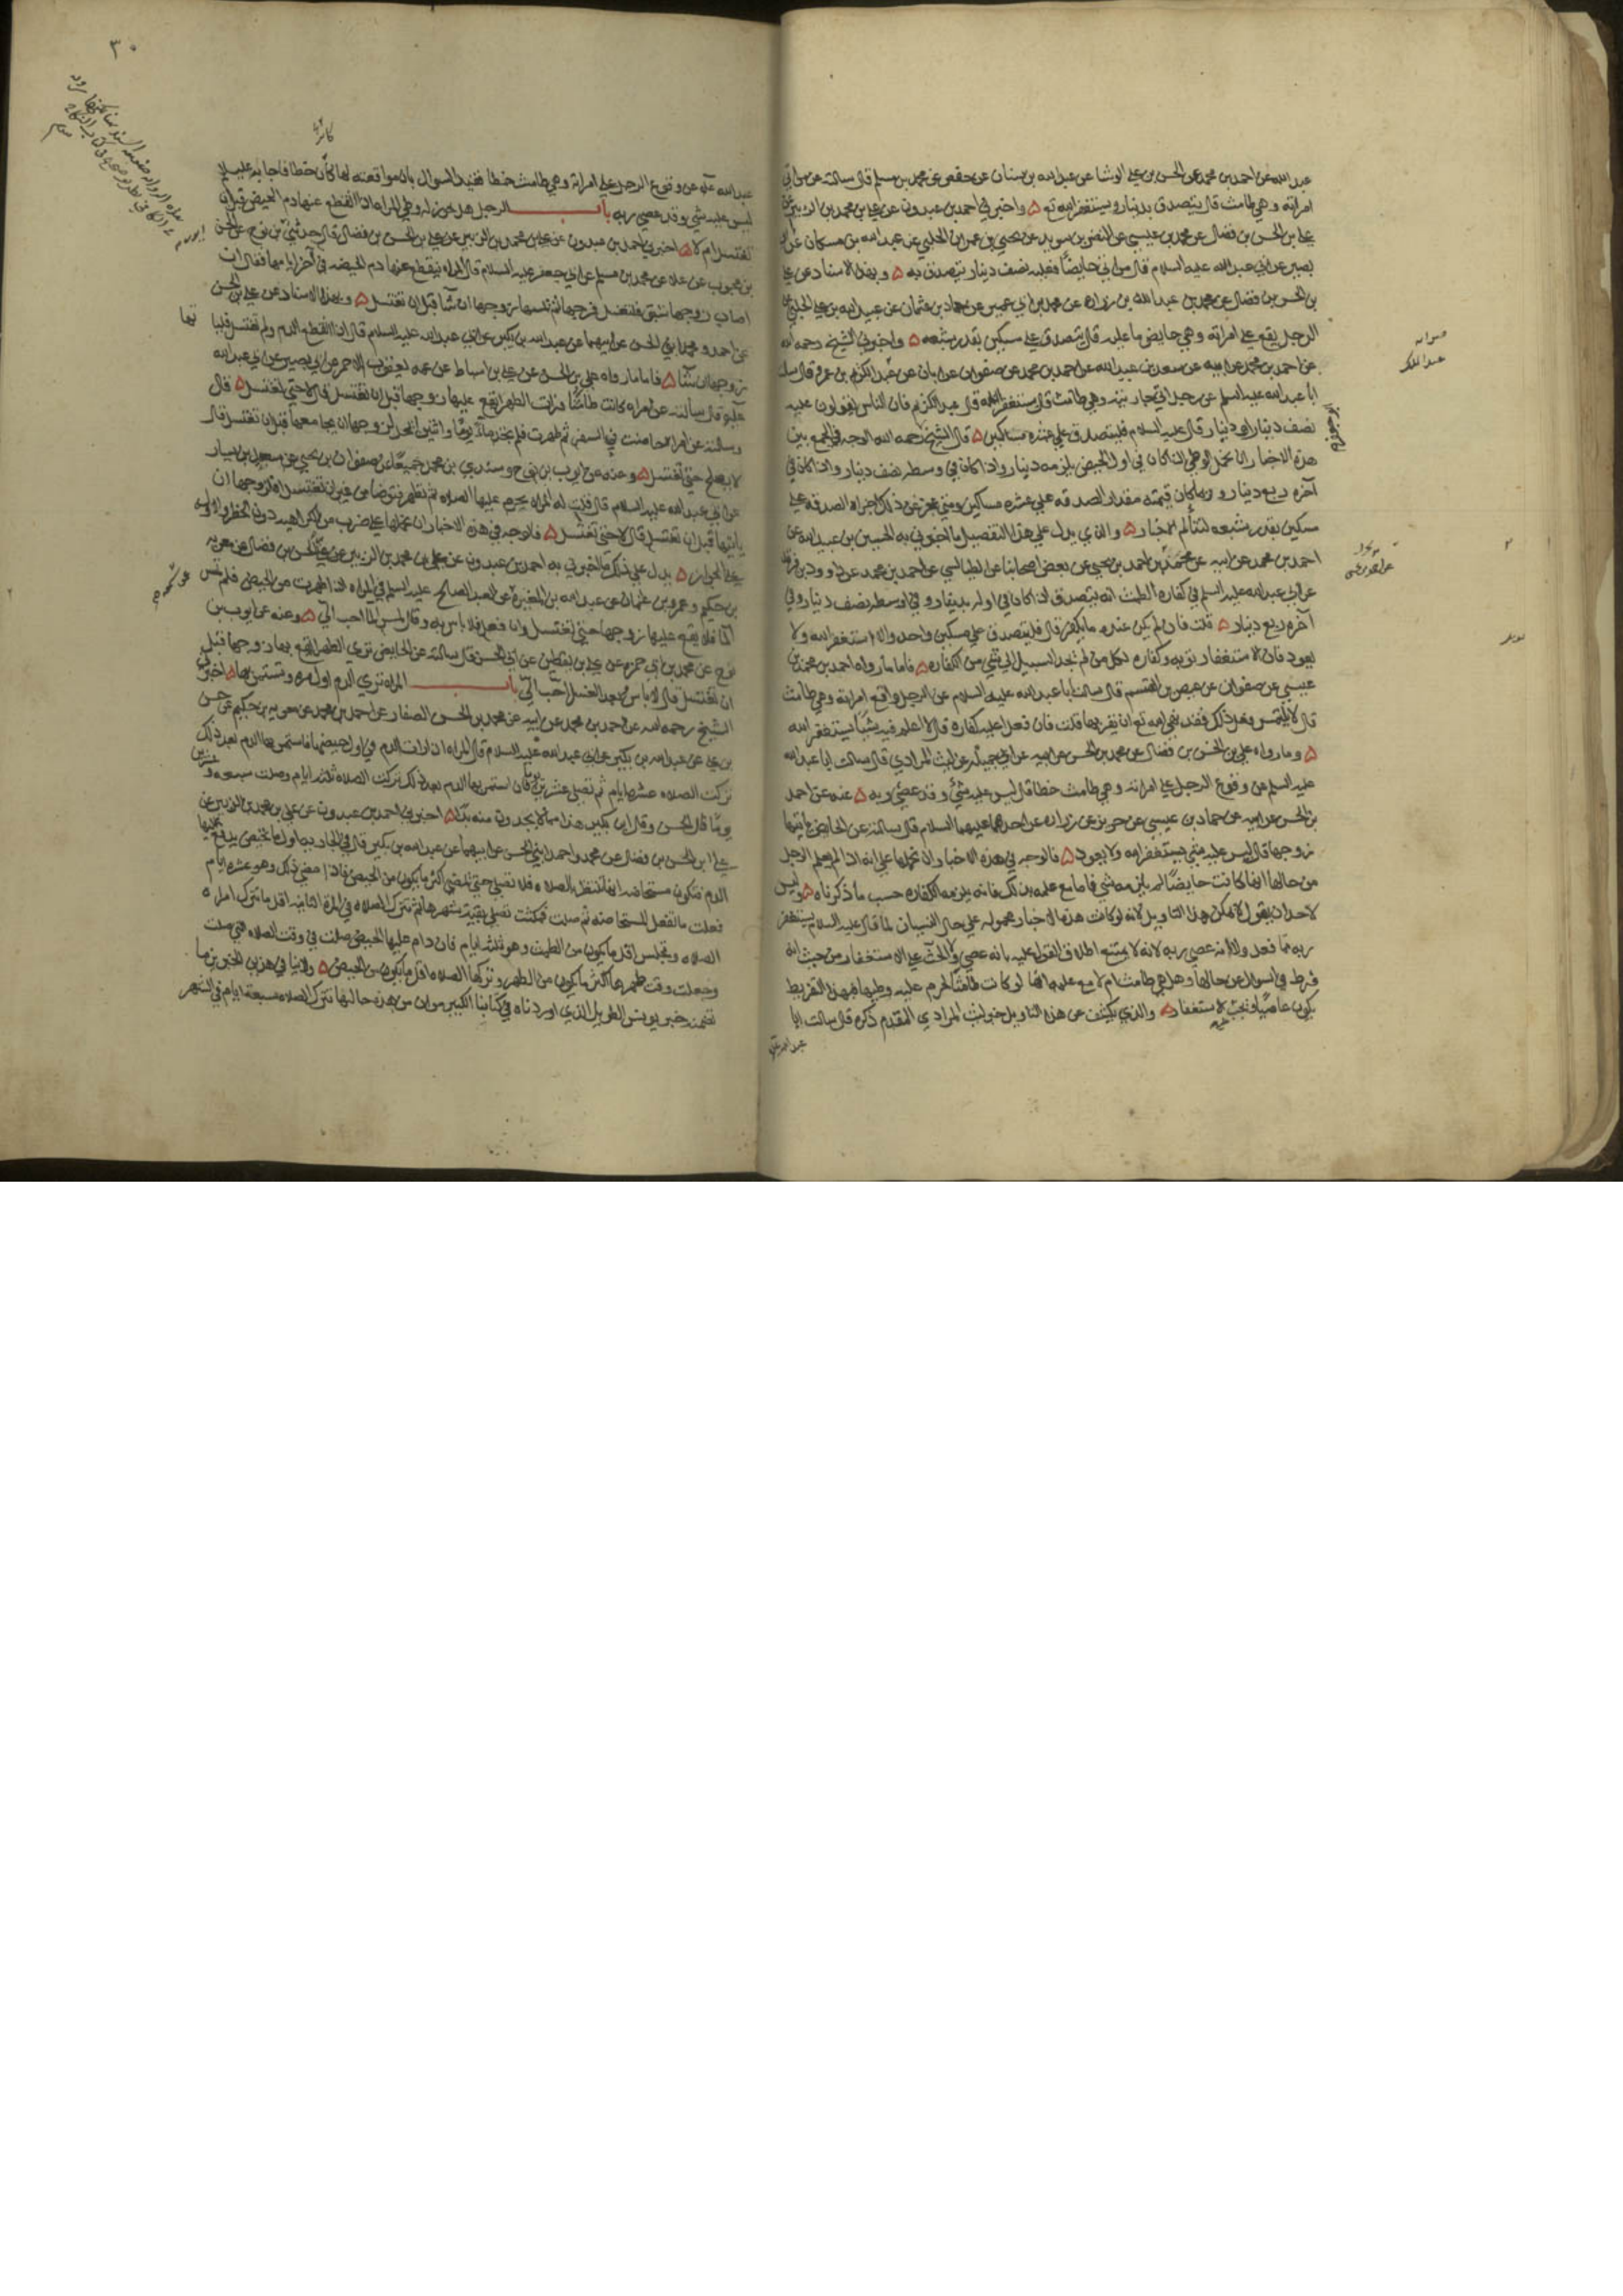 عبد الله عن احمد بن محمد عن الحسن بن علي الوشا عن عبد الله بن سنان عن حفص عن محمد بن مسلم قال سالته عن من اتى
امراته وهي طامث قال يتصدق بدينار ويستغفر الله تع ۵ واخبرني احمد بن عبدون عن علي بن محمد بن الزبير عن
علي بن الحسن بن فضال عن محمد بن عيسى عن النضر بن سويد عن يحيى بن عمران الحلبي عن عبد الله بن مسكان عن ابي
بصير عن ابي عبد الله عليه السلام قال من اتى حايضا فعليه نصف دينار يتصدق به ۵ وبهذا الاسناد عن علي
بن الحسن بن فضال عن محمد بن عبد الله بن زراره عن محمد بن ابي عمير عن حماد بن عثمان عن عبيد الله بن علي الحلبي عن
الرجل يقع على امراته وهي حايض ما عليه قال يتصدق على مسكين بقدر شبعه ۵ واخبرني الشيخ رحمه الله
عن احمد بن محمد عن ابيه عن سعد بن عبد الله عن احمد بن محمد عن صفوان عن ابان عن عبد الكريم بن عمرو قال سالت
ابا عبد الله عليه السلم عن رجل اتى جاريته وهي طامث قال يستغفر الله قال عبد الكريم فان الناس يقولون عليه
نصف دينار او دينار قال عليه السلام فليتصدق على عشره مساكين ۵ قال الشيخ رحمه الله الوجه في الجمع بين
هذه الاخبار ان نحمل الوطي اذا كان في اول الحيض يلزمه دينار واذا كان في وسطه نصف دينار واذا كان في
آخره ربع دينار وربما كان قيمته مقدار الصدقه على عشره مساكين ومتى عجز عن ذلك اجزاه الصدقه على
مسكين بقدر شبعه لتتلائم الاخبار ۵ والذي يدل على هذا التفصيل ما اخبرني به الحسين بن عبيد الله عن
احمد بن محمد عن ابيه عن محمد بن احمد بن يحيى عن بعض اصحابنا عن الطيالسي عن احمد بن محمد عن داوود بن فرقد
عن ابي عبد الله عليه السلم في كفاره الطمث انه يتصدق اذا كان في اوله بدينار وفي اوسطه نصف دينار وفي
آخره ربع دينار ۵ قلت فان لم يكن عنده ما يكفر قال فليتصدق على مسكين واحد والا استغفر الله ولا
يعود فان الاستغفار توبه وكفاره لكل من لم يجد السبيل الى شي من الكفاره ۵ فاما ما رواه احمد بن محمد بن
عيسى عن صفوان عن عيص بن القسم قال سالت ابا عبد الله عليه السلام عن الرجل واقع امراته وهي طامث
قال لا يلتمس فعل ذلك فقد نهى الله تع ان يقربها قلت فان فعل اعليه كفاره قال لا اعلم فيه شيئا يستغفر الله
۵ وما رواه علي بن الحسن بن فضال عن محمد بن الحسن عن ابيه عن ابي جميله عن ليث المرادي قال سالت ابا عبد الله
عليه السلم عن وقوع الرجل على امراته وهي طامث خطا قال ليس عليه شئ وقد عصى ربه ۵ عنه عن احمد
بن الحسن عن ابيه عن حماد بن عيسى عن حريز عن زراره عن احدهما عليهما السلام قال سالته عن الحايض ياتيها
زوجها قال ليس عليه شي يستغفر الله ولا يعود ۵ فالوجه في هذه الاخبار ان نحملها على انه اذا لم يعلم الرجل
من حالها انها كانت حايضا لم يلزمه شي فاما مع علمه بذلك فانه يلزمه الكفاره حسب ما ذكرناه ۵ وليس
لاحد ان يقول لا يمكن هذا التاويل لانه لو كانت هذه الاخبار محموله على حال النسيان لما قال عليه السلام يستغفر
ربه مما فعل ولا انه عصى ربه لانه لا يمتنع اطلاق القول عليه بانه عصى والحث على الاستغفار من حيث انه
فرط في السوال عن حالها وهل هي طامث ام لا مع علمه انها لو كانت طامثا لحرم عليه وطيها فبهذا التفريط
يكون عاصيا ويجب الاستغفار ۵ والذي يكشف عن هذا التاويل خبر ليث المرادي المقدم ذكره قال سالت ابا
٣٠
عبد الله عليه عن وقوع الرجل على امراته وهي طامث خطا فقيد السوال بان مواقعته لها كان خطا فاجابه عليه السلم
ليس عليه شي وقد عصى ربه باب الرجل هل يجوز له وطي المراه اذا انقطع عنها دم الحيض قبل ان
تغتسل ام لا ۵ اخبرني احمد بن عبدون عن علي بن محمد بن الزبير عن علي بن الحسن بن فضال قال حدثني بن نوح عن الحسن
بن محبوب عن علاء عن محمد بن مسلم عن ابي جعفر عليه السلام قال المراه ينقطع عنها دم الحيضه في آخر ايامها فقال ان
اصاب زوجها شبق فلتغسل فرجها ثم يمسها زوجها ان شا قبل ان تغتسل ۵ وبهذا الاسناد عن علي بن الحسن
عن احمد ومحمد ابني الحسن عن ابيهما عن عبد الله بن بكير عن ابي عبد الله عليه السلام قال اذا انقطع الدم ولم تغتسل فلياتها
زوجها ان شا ۵ فاما ما رواه علي بن الحسن عن علي بن اسباط عن عمه يعقوب الاحمر عن ابي بصير عن ابي عبد الله
عليه قال سالته عن امراه كانت طامثا فرات الطهر ايقع عليها زوجها قبل ان تغتسل قال لا حتى تغتسل ۵ قال
وسالته عن امراه حاضت في السفر ثم طهرت فلم تجد ماء يوما واثنين ايحل لزوجها ان يجامعها قبل ان تغتسل قال
لا يصلح حتى تغتسل ۵ وعنه عن ايوب بن نوح وسندي بن محمد جميعا عن صفوان بن يحيى عن سعيد بن يسار
عن ابي عبد الله عليه السلام قال قلت له المراه يحرم عليها الصلاه ثم تطهر فتوضا من غير ان تغتسل افلزوجها ان
ياتيها قبل ان تغتسل قال لا حتى تغتسل ۵ فالوجه في هذه الاخبار ان نحملها على ضرب من الكراهيه دون الحظر والاوله
على الجواز ۵ يدل على ذلك ما اخبرني به احمد بن عبدون عن علي بن محمد بن الزبير عن علي بن الحسن بن فضال عن معويه
بن حكيم وعمرو بن عثمان عن عبد الله بن المغيرة عن العبد الصالح عليه السلم في المراه اذا طهرت من الحيض فلم تمس
الماء فلا يقع عليها زوجها حتى تغتسل وان فعل فلا باس به وقال تمس الماء احب الي ۵ وعنه عن ايوب بن
نوح عن محمد بن ابي حمزه عن علي بن يقطين عن ابي الحسن قال سالته عن الحايض ترى الطهر ايقع بها زوجها قبل
ان تغتسل قال لا باس وبعد الغسل احب الي باب المراه ترى الدم اول مره ويستمر بها ۵ اخبرني
الشيخ رحمه الله عن احمد بن محمد عن ابيه عن محمد بن الحسن الصفار عن احمد بن محمد عن معويه بن حكيم عن حسن
بن علي عن عبد الله بن بكير عن ابي عبد الله عليه السلام قال المراه اذا رات الدم في اول حيضها فاستمر بها الدم بعد ذلك
تركت الصلاه عشره ايام ثم تصلي عشرين يوما فان استمر بها الدم بعد ذلك تركت الصلاه ثلثه ايام وصلت سبعه وعشرين
يوما قال الحسن وقال ابن بكير هذا مما لا يجدون منه بدا ۵ اخبرني احمد بن عبدون عن علي بن محمد بن الزبير عن
علي بن الحسن بن فضال عن محمد واحمد ابني الحسن عن ابيهما عن عبد الله بن بكير قال في الجاريه اول ما تحيض يدفع عليها
الدم فتكون مستحاضه انها تنتظر بالصلاه فلا تصلي حتى يمضي اكثر ما يكون من الحيض فاذا مضى ذلك وهو عشره ايام
فعلت ما تفعل المستحاضه ثم صلت فمكثت تصلي بقية شهرها ثم تترك الصلاه في المرة الثانيه اقل ما تترك امراه
الصلاه وتجلس اقل ما يكون من الطمث وهو ثلثه ايام فان دام عليها الحيض صلت في وقت الصلاه التي صلت
وجعلت وقت طهرها اكثر ما يكون من الطهر وتركها الصلاه اقل ما يكون من الحيض ۵ ولا ينافي هذين الخبرين ما
تضمنه خبر يونس الطويل الذي اوردناه في كتابنا الكبير من ان من هذه حالها تترك الصلاه سبعة ايام في الشهر